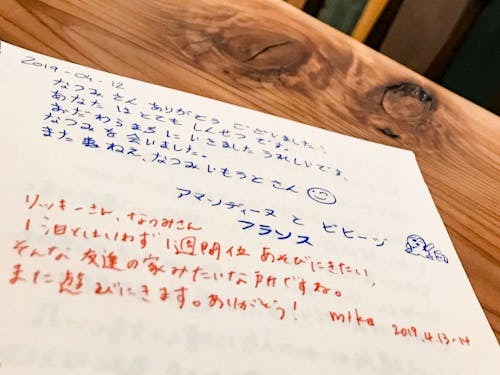 2019-04-12
なつみさん ありがとう ございました!
あなたは とても しんせつ です。
おだわらまちに いきました うれしいです。
なつみを会いました。
またねえ、なつみ いもうと さん
アマンディーヌ と ビビーン
フランス
リッキーさん、なつみさん
1泊といわず 1週間位 あそびにきたい、
そんな 友達の家みたいな所ですね。
また遊びにきます。ありがとう! mika 2019.4.13-14